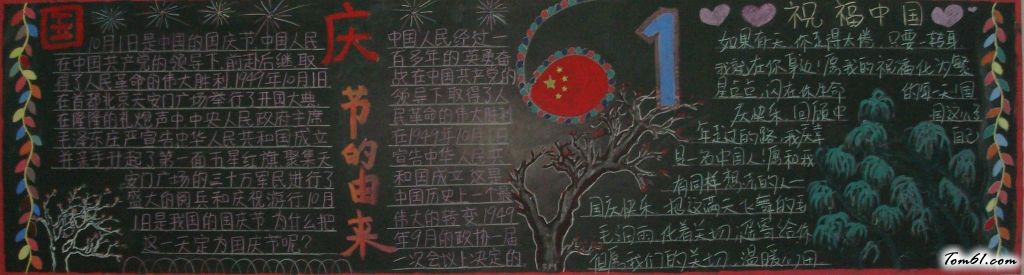 国庆节的由来
10月1日是中国的国庆节,中国人民
在中国共产党的领导下,前赴后继,取
得了人民革命的伟大胜利,1949年10月1日
在首都北京天安门广场举行了开国大典
在隆隆的礼炮声中中央人民政府主席
毛泽东庄严宣告中华人民共和国成立
并亲手升起了第一面五星红旗,聚集天
安门广场的三十万军民进行了
盛大的阅兵和庆祝游行10月
1日是我国的国庆节.为什么把
这一天定为国庆节呢?
中国人民经过一
百多年的英勇奋
战在中国共产党的
领导下取得了人
民革命的伟大胜利
在1949年10月1日
宣告中华人民共
和国成立,这是
中国历史上一个
伟大的转变,1949
年9月的政协一届
一次会议上决定的
1
祝福中国
如果在天,你走得太懵,只要一转身
我就在你身边!愿我的祝福化为繁
星点点,闪在你生命的每一天!国
庆快乐,回顾中国这么多
年走过的路,我庆幸自己
是一名中国人!愿和我
有同样想法的人
国庆快乐.把这满天飞舞的
毛泪雨,化着关切,遥寄给你
但愿我们的关切,温暖心田
Tom61.com